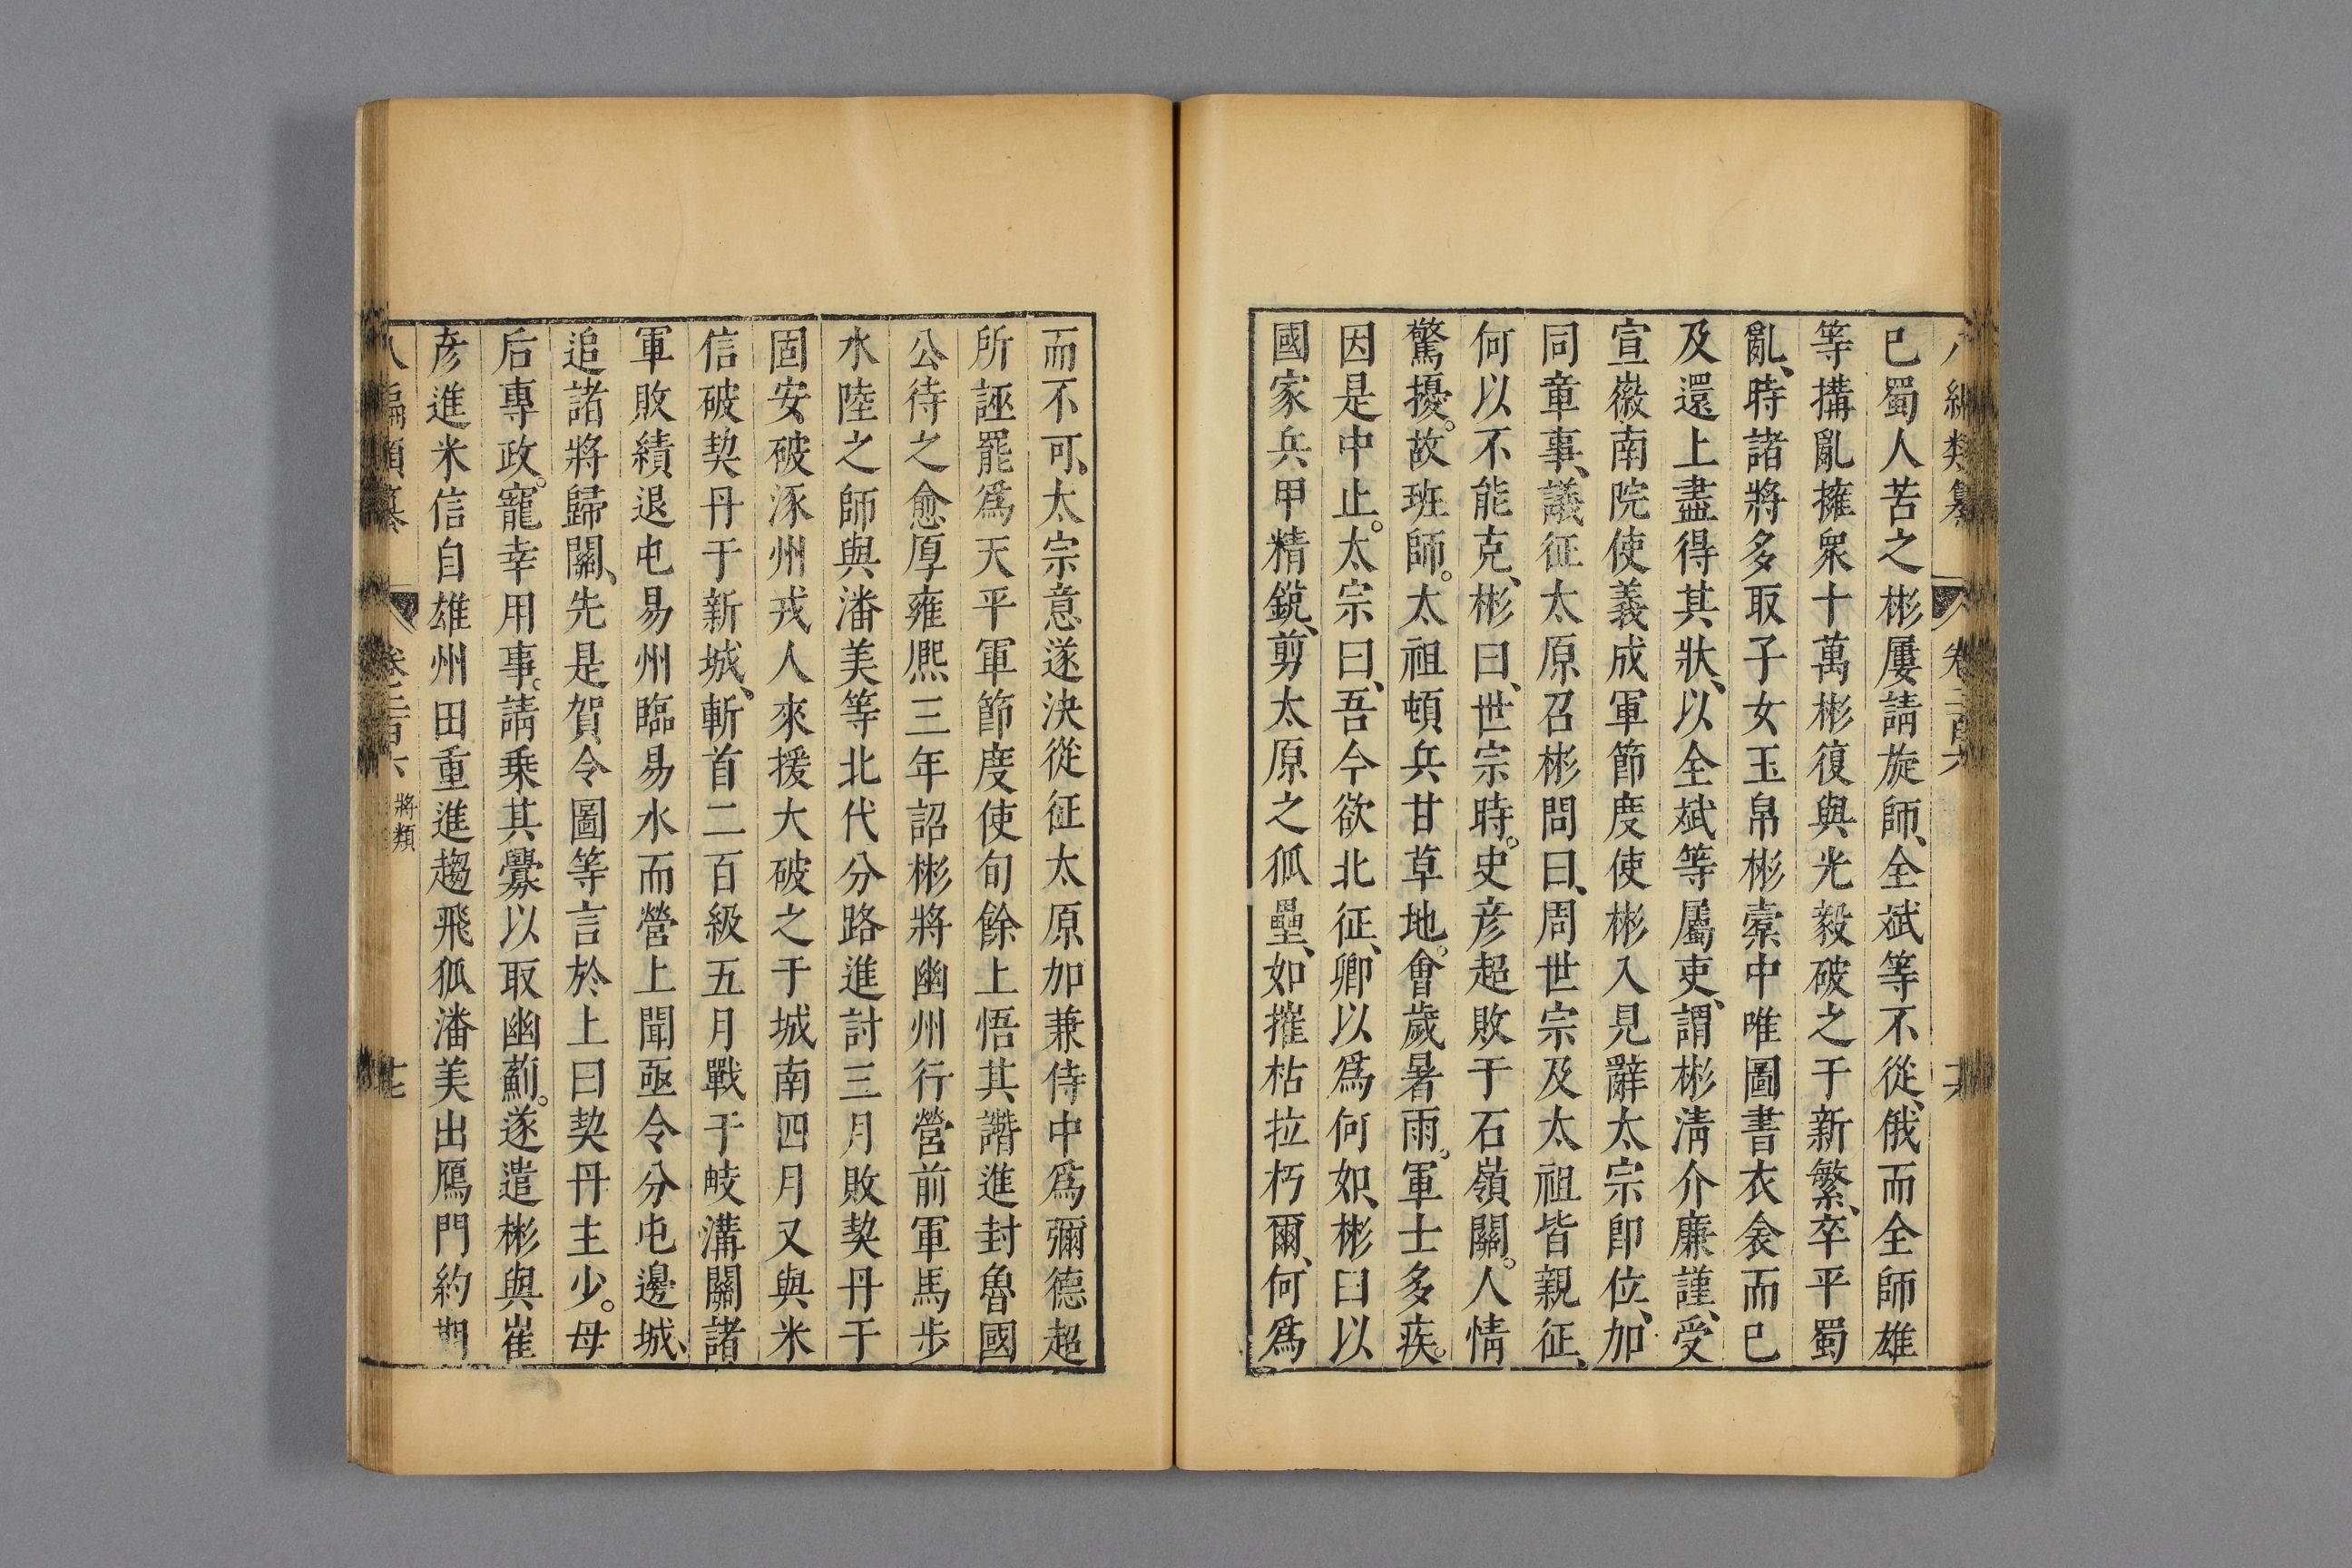 編類纂 卷二百六 十六
已蜀人苦之彬屢請旋師、全斌等不從、俄而全師雄
等搆亂擁衆十萬彬復與光毅破之于新繁、卒平蜀
亂、時諸將多取子女玉帛彬橐中唯圖書衣衾而已
及還上盡得其狀、以全斌等屬吏、謂彬清介廉謹、受
宣徽南院使義成軍節度使彬入見辭太宗卽位、加
同章事、議征太原召彬問曰、周世宗及太祖皆親征、
何以不能克、彬曰、世宗時。史彥超敗于石嶺關。人情
驚擾。故班師。太祖頓兵甘草地。會歲暑雨。軍士多疾。
因是中止。太宗曰、吾今欲北征、卿以爲何如、彬曰以
國家兵甲精銳、剪太原之孤壘、如摧枯拉朽爾、何爲
而不可、太宗意遂決從征太原加兼侍中爲彌德超
所誣罷爲天平軍節度使旬餘上悟其譖進封魯國
公待之愈厚雍熙三年詔彬將幽州行營前軍馬步
水陸之師與潘美等北代分路進討三月敗契丹于
固安、破涿州戎人來援大破之于城南四月又與米
信破契丹于新城、斬首二百級五月戰于岐溝關諸
軍敗績退屯易州臨易水而營上聞亟令分屯邊城、
追諸將歸闕、先是賀令圖等言於上曰契丹主少。母
后專政。寵幸用事。請乘其釁以取幽薊。遂遣彬與崔
彥進米信自雄州田重進趨飛狐潘美出鴈門約期
八編類纂 卷二百六 將類 十七